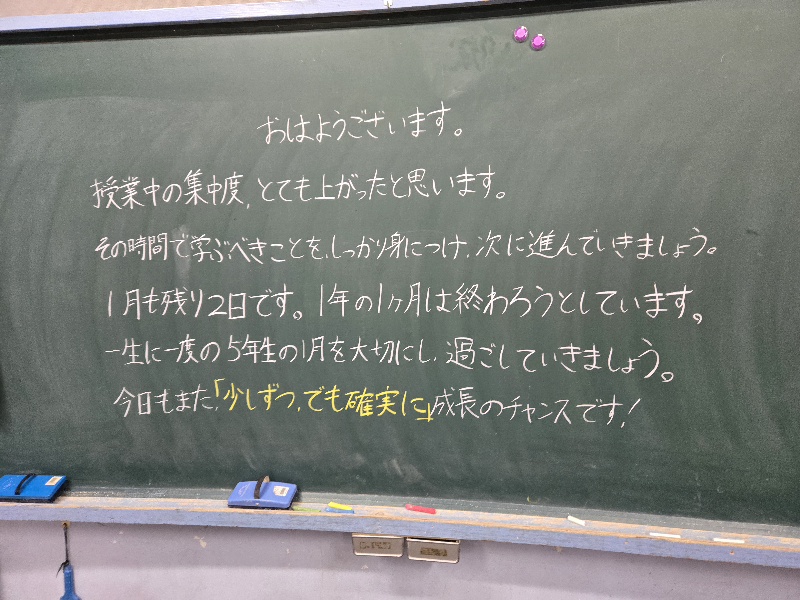 おはようございます。
授業中の集中度、とても上がったと思います。
その時間で学ぶべきことを、しっかり身につけ、次に進んでいきましょう。
1月も残り2日です。1年の1ヶ月は終わろうとしています。
一生に一度の5年生の1月を大切にし、過ごしていきましょう。
今日もまた、「少しずつ、でも確実に」成長のチャンスです!